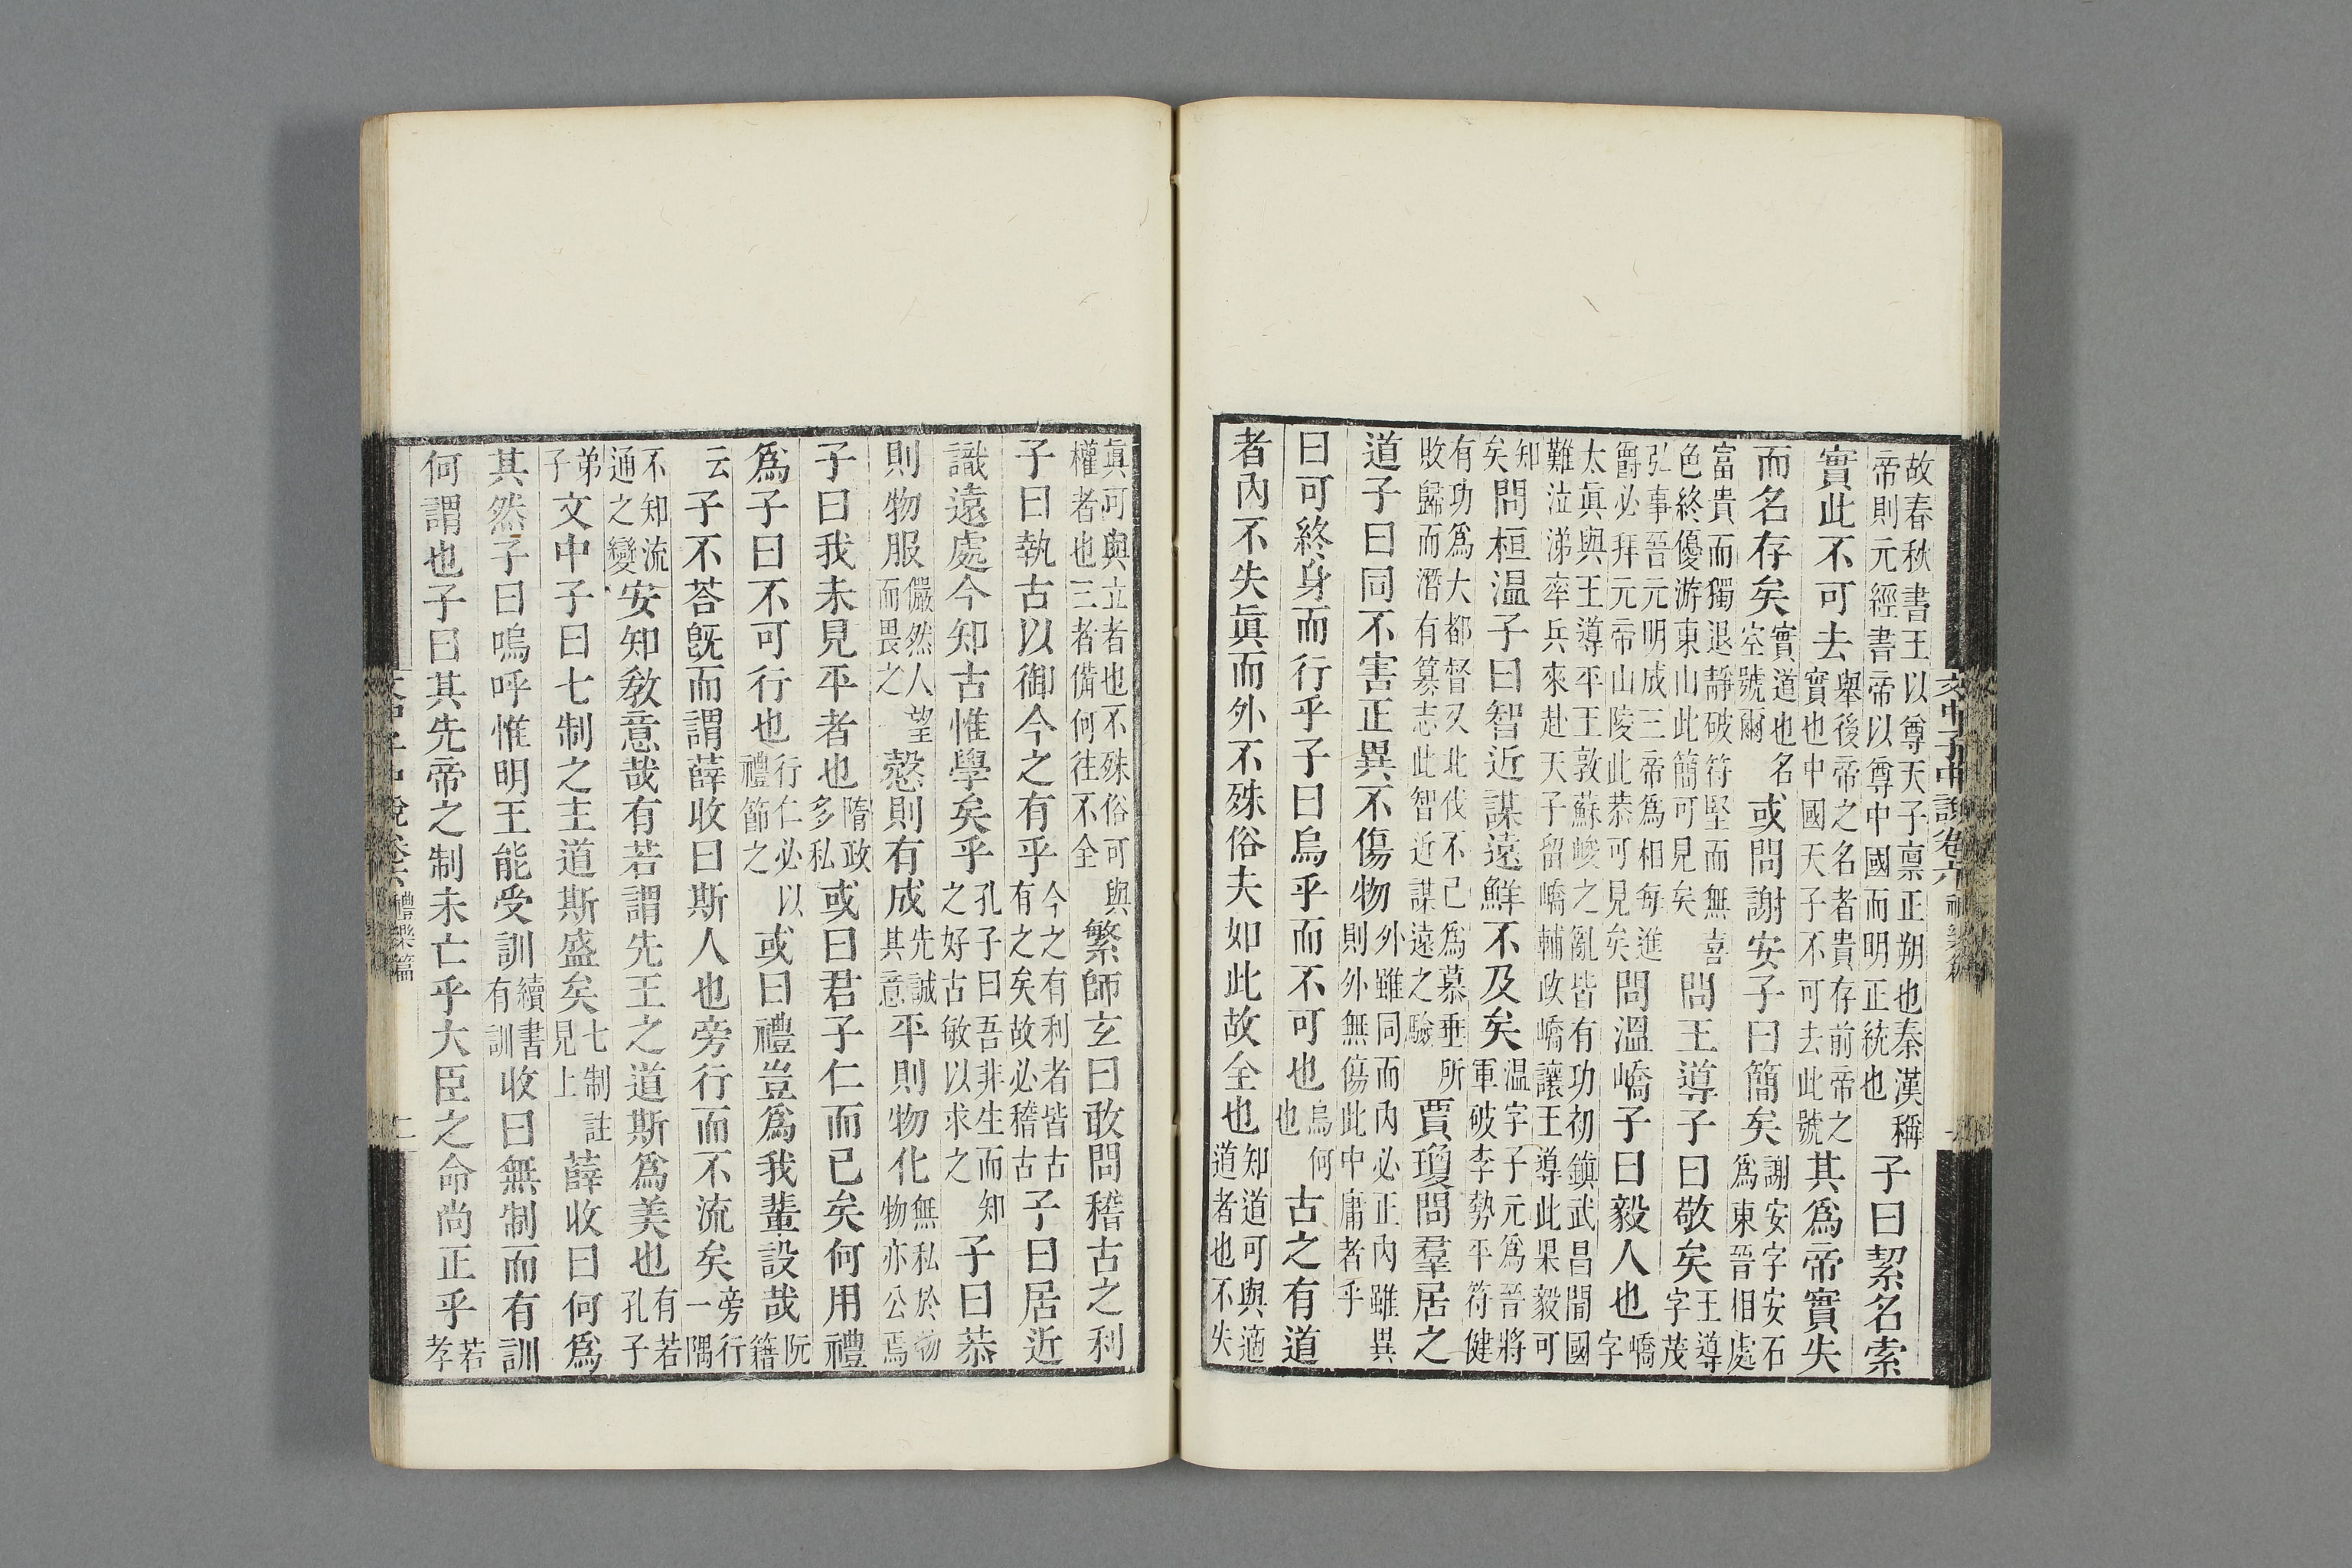 文中子中說卷六 禮樂篇
故春秋書王以尊天子禀正朔也秦漢稱
帝則元經書帝以尊中國而明正統也
子曰絜名索
實此不可去
舉後帝之名者貴存前帝之
實也中國天子不可去此號
其爲帝實失
而名存矣
實道也名
空號爾
或問謝安子曰簡矣
謝安字安石
爲東晉相處
富貴而獨退靜破符堅而無喜
色終優游東山此簡可見矣
問王導子曰敬矣
王導
字茂
弘事晉元明成三帝爲相每進
爵必拜元帝山陵此恭可見矣
問溫嶠子曰毅人也
嶠
字
太眞與王導平王敦蘇峻之亂皆有功初鎮武昌聞國
難泣涕率兵來赴天子留嶠輔政嶠讓王導此果毅可
知
矣
問桓温子曰智近謀遠鮮不及矣
温字子元爲晉將
軍破李勢平符健
有功爲大都督又北伐不己爲慕垂所
敗歸而潛有簒志此智近謀遠之驗
賈瓊問羣居之
道子曰同不害正異不傷物
外雖同而內必正內雖異
則外無傷此中庸者乎
曰可終身而行乎子曰烏乎而不可也
烏何
也
古之有道
者內不失眞而外不殊俗夫如此故全也
知道可與適
道者也不失
眞可與立者也不殊俗可與
權者也三者備何往不全
繁師玄曰敢問稽古之利
子曰執古以御今之有乎
今之有利者皆古
有之矣故必稽古
子曰居近
識遠處今知古惟學矣乎
孔子曰吾非生而知
之好古敏以求之
子曰恭
則物服
儼然人望
而畏之
慤則有成
先誠
其意
平則物化
無私於物
物亦公焉
子曰我未見平者也
隋政
多私
或曰君子仁而已矣何用禮
爲子曰不可行也
行仁必以
禮節之
或曰禮豈爲我輩設哉
阮
籍
云
子不荅旣而謂薛收曰斯人也旁行而不流矣
旁行
一隅
不知流
通之變
安知敎意哉有若謂先王之道斯爲美也
有若
孔子
弟
子
文中子曰七制之主道斯盛矣
七制註
見上
薛收曰何爲
其然子曰嗚呼惟明王能受訓
續書
有訓
收曰無制而有訓
何謂也子曰其先帝之制未亡乎大臣之命尚正乎
若
孝
文中子中說卷六 禮樂篇 二